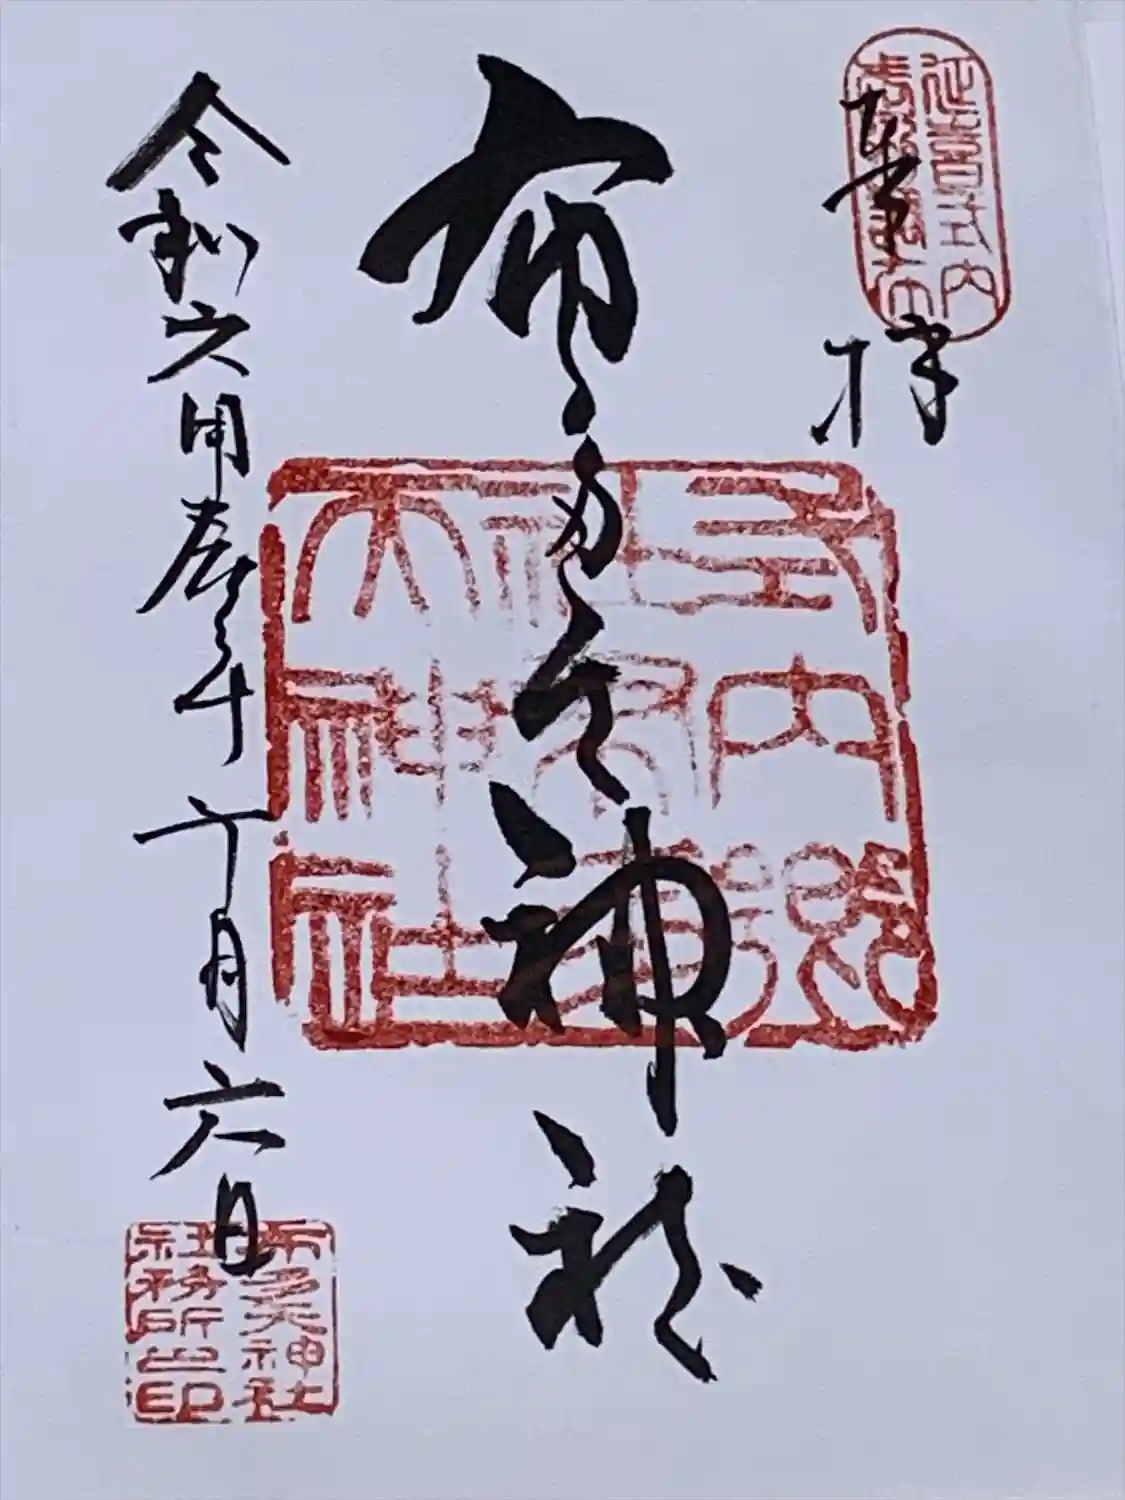 延喜式内
奉拝
布多天神社
天神社
令和六甲辰年十月六日
布多天神社
社務所之印